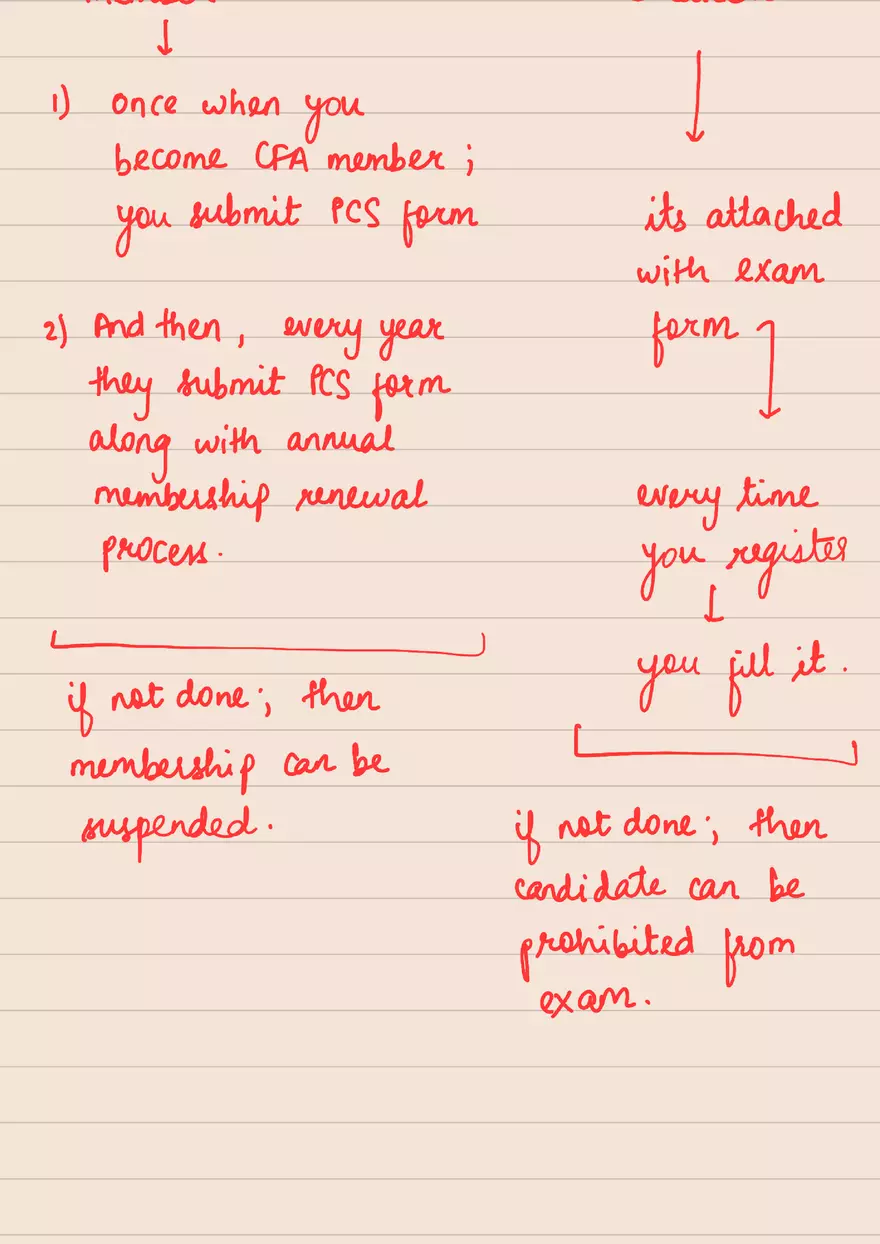 1) once when you
become CFA member ;
you submit PCS form
2) And then , every year
they submit PCS form
along with annual
membership renewal
process.
if not done ; then
membership can be
suspended.
its attached
with exam
form
every time
you register
you fill it .
if not done ; then
candidate can be
prohibited from
exam.